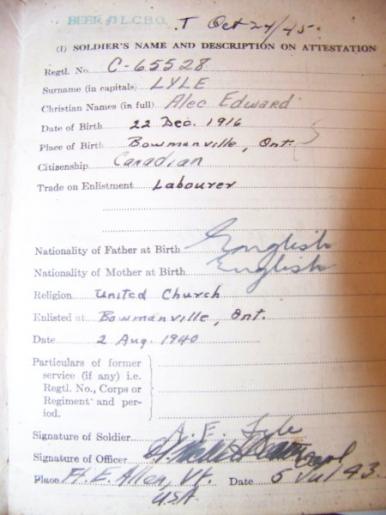 BEER L.C.B.O. T Oct 24/45
(I) SOLDIER'S NAME AND DESCRIPTION ON ATTESTATION
Regtl. No. C-65528
Surname (in capitals) LYLE
Christian Names (in full) Alec Edward
Date of Birth 22 Dec. 1916
Place of Birth Bowmanville, Ont.
Citizenship Canadian
Trade on Enlistment Labourer
Nationality of Father at Birth English
Nationality of Mother at Birth English
Religion United Church
Enlisted at Bowmanville, Ont.
Date 2 Aug. 1940
Particulars of former
service (if any) i.e.
Regtl. No., Corps or
Regiment and per-
iod.
Signature of Soldier A. E. Lyle
Signature of Officer Capt
Place Ft. E. Allen, Vt. Date 5 Jul 43.
USA